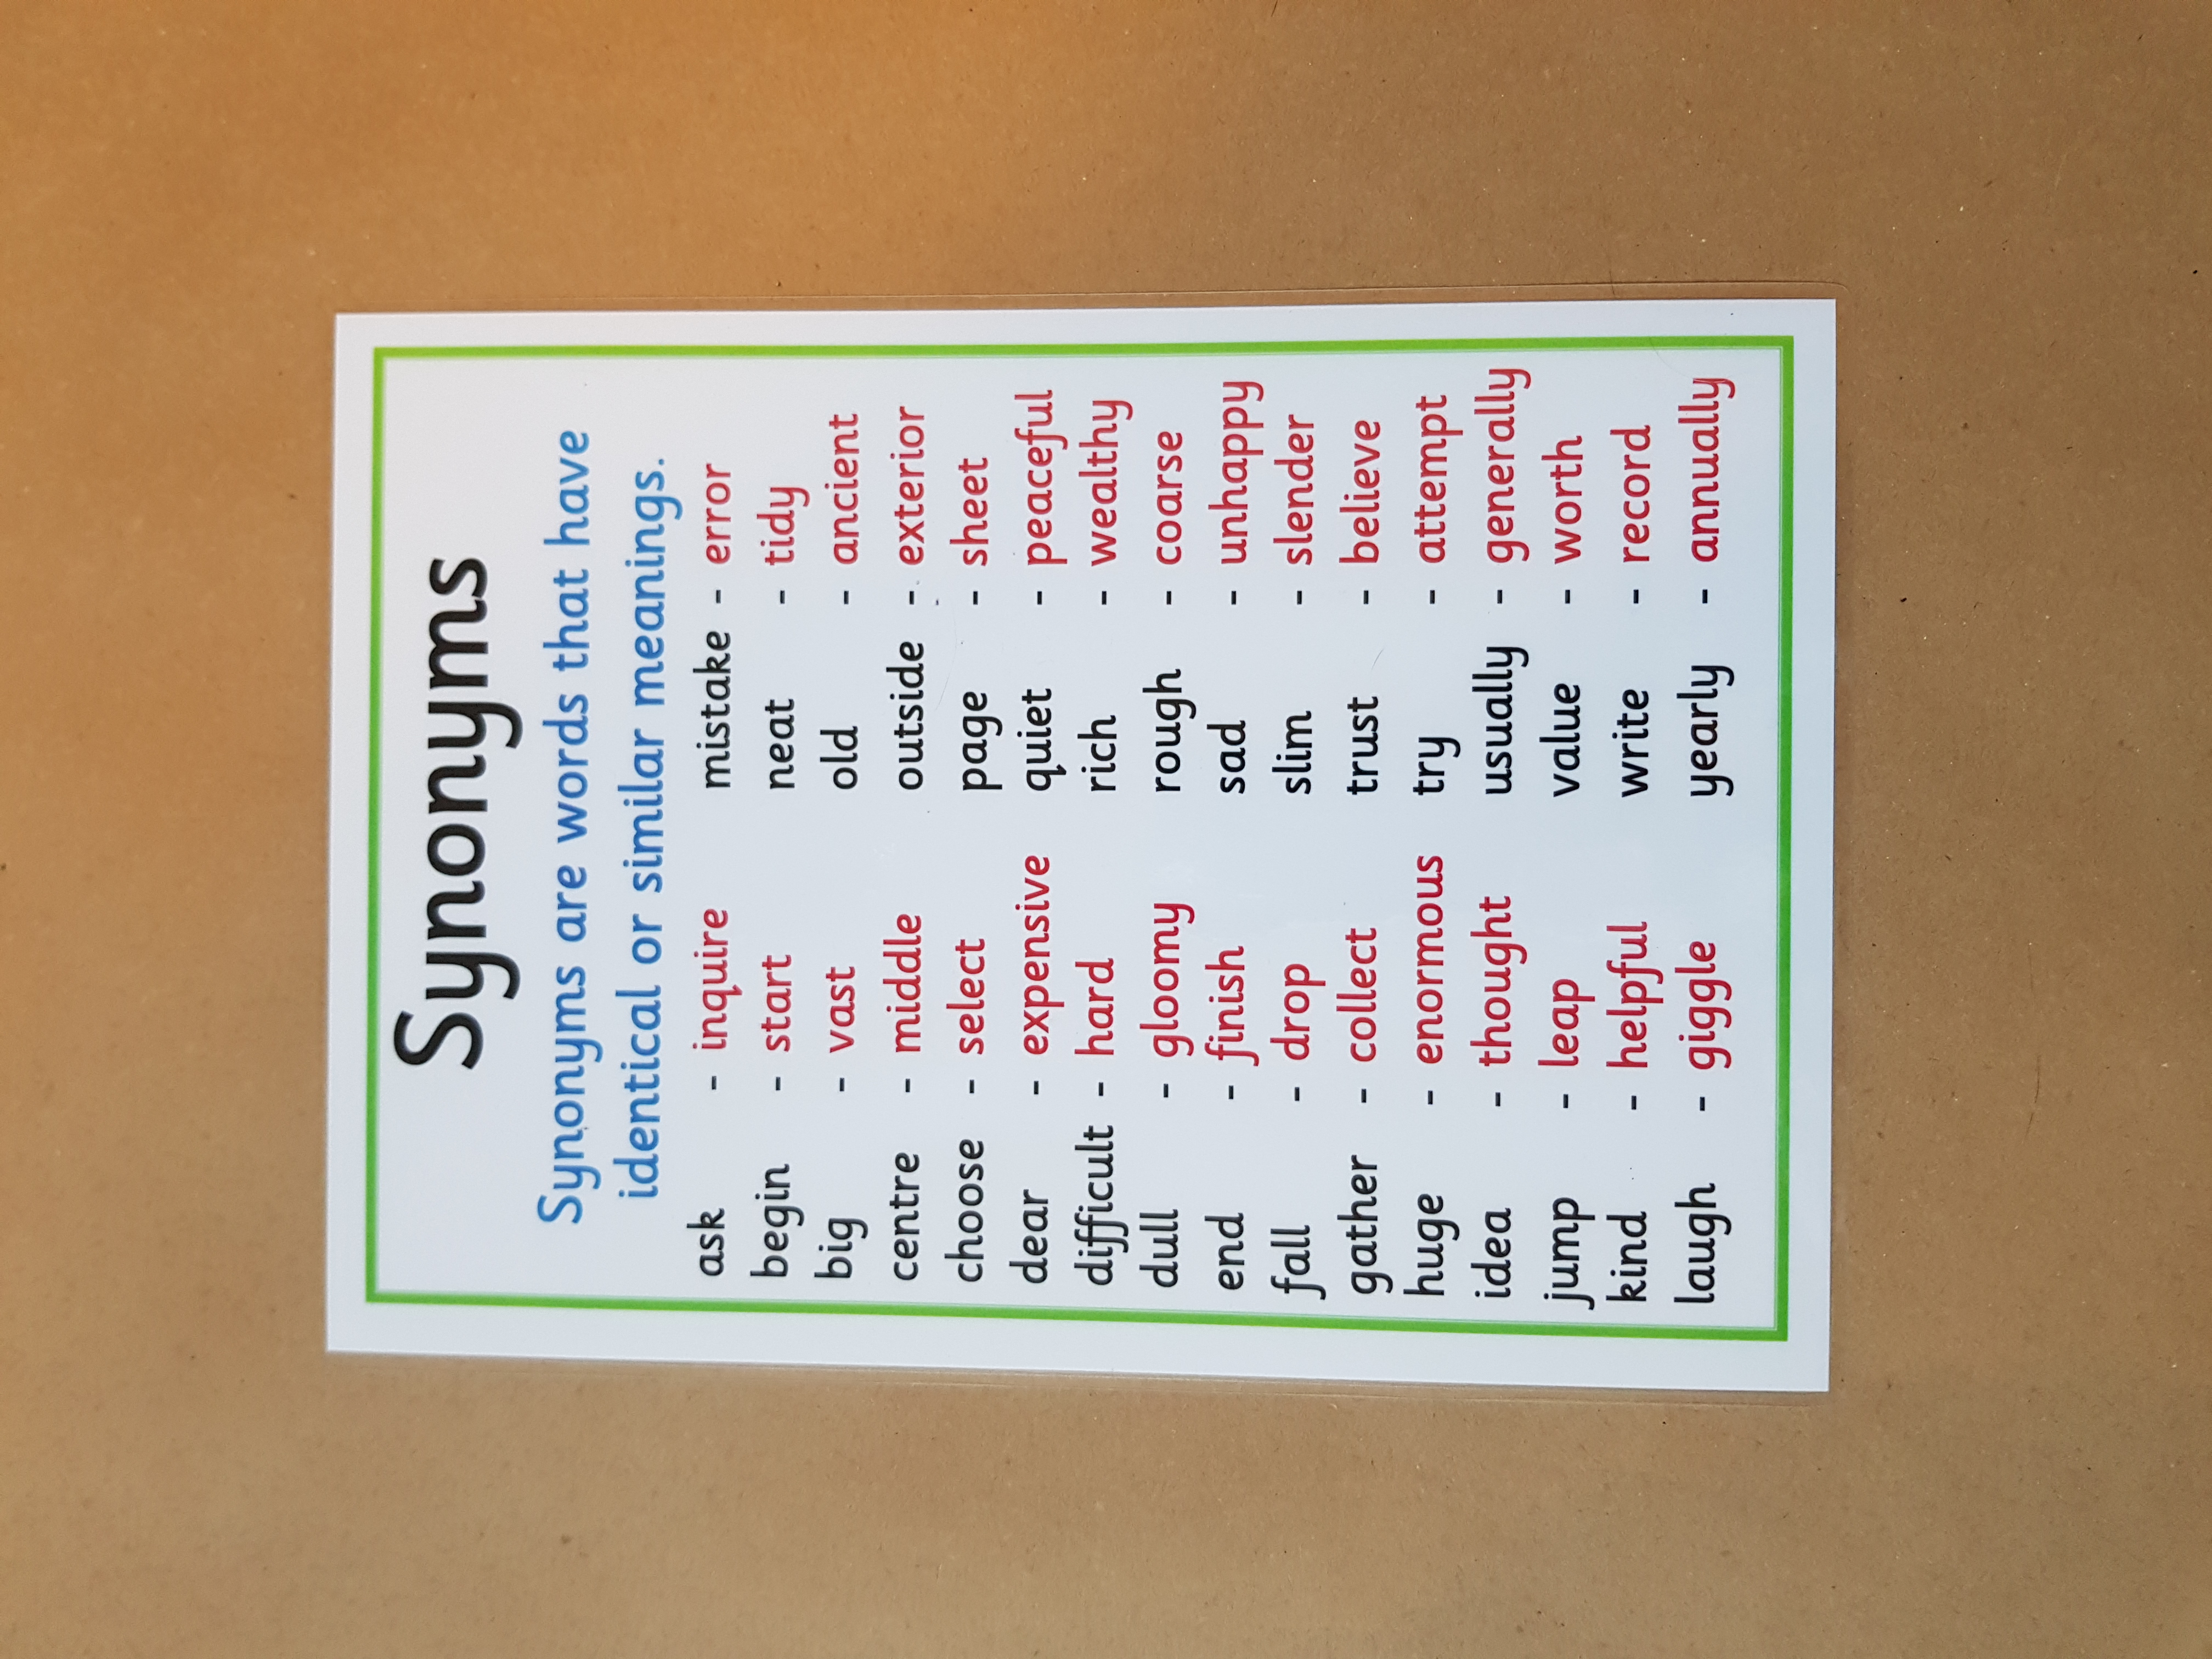 Synonyms
Synonyms are words that have
identical or similar meanings.
ask - inquire
begin - start
big - vast
centre - middle
choose - select
dear - expensive
difficult - hard
dull - gloomy
end - finish
fall - drop
gather - collect
huge - enormous
idea - thought
jump - leap
kind - helpful
laugh - giggle
mistake - error
neat - tidy
old - ancient
outside - exterior
page - sheet
quiet - peaceful
rich - wealthy
rough - coarse
sad - unhappy
slim - slender
trust - believe
try - attempt
usually - generally
value - worth
write - record
yearly - annually